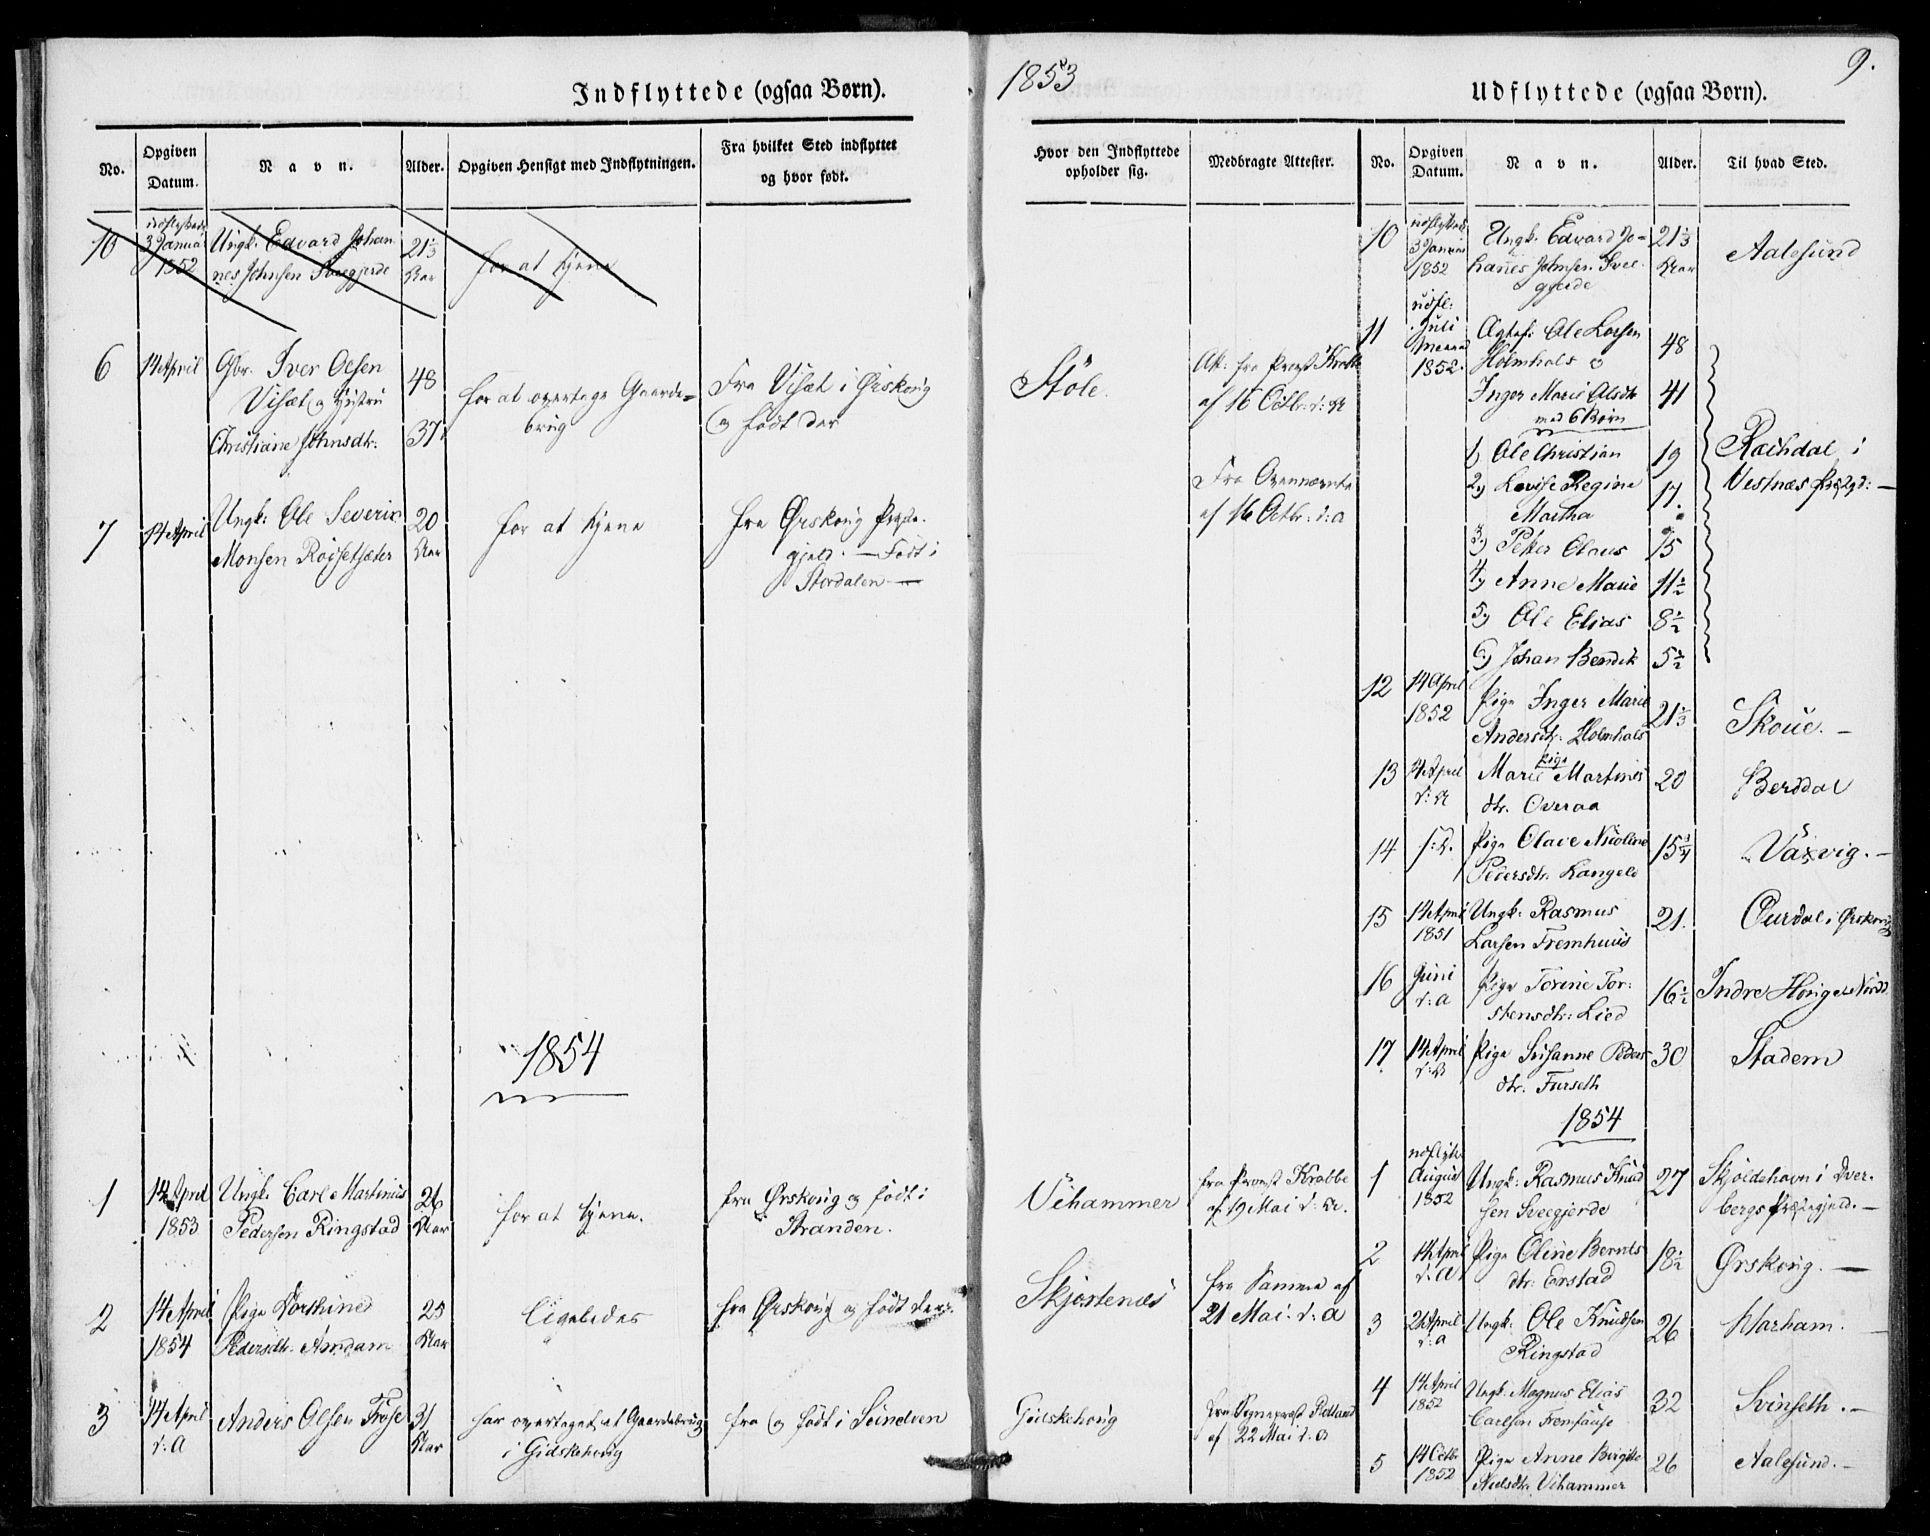 Indflyttede (ogsaa Børn).
No.
Opgiven Datum.
Navn.
Alder.
Opgiven Hensigt med Indflytningen.
Fra hvilket Sted indflyttet og hvor født.
10
3 Januar
1852
Ungk. Edvard Johan
nes Johnsen Sveegjerde
21 1/3
Aar
for at tjene
6
14 April
Gbr. Iver Olsen
Viset og Hustru
Christiane Johnsdtr.
48
37
for at overtage Gaards=
brug
Fra Viset i Ørskoug
og født der
7
14 April
Ungk: Ole Severin
Monsen Røjsetsæter
20
Aar
for at tjene
fra Ørskoug Præste-
gjeld. — Født i
Stordalen —
1854
1
14 April
1853
Ungk. Carl Martinus
Pedersen Ringstad
26
Aar
for at tjene.
fra Ørskoug og født i
Stranden.
2
14 April
1854
Pige
Pedersdtr. Amdam
25
Aar
ligeledes
fra Ørskoug og født der.
3
14 April
d: A
Anders Olsen
31
Aar
har overtaget et Gaardsbrug
i Gidskehoug
fra og født i Sundven
1853
Udflyttede (ogsaa Børn).
9.
Hvor den Indflyttede opholder sig.
Medbragte Attester.
No.
Opgiven Datum.
Navn.
Alder.
Til hvad Sted.
Støle.
Att: fra Provst Krabbe
af 16 Octbr. d: A
Fra Ovennævnte
af 16 Octbr: d: a
Vehammer
fra Provst Krabbe
af 19 Mai d: A.
Skjortenes
fra Samme af
21 Mai d: A
Gidskehoug
af 22 Mai d: a
10
3 Januar
1852
Ungk. Edvard Jo-
hanes Johnsen Svee-
gjerde
21 1/3
Aar
Aalesund
11
udfl:
Juli
Maaned
1852.
Ole Larsen
Holmhals &
Inger Marie Olsdtr
med 6 Børn
48
41
1) Ole Christian 19
2) Lovise Regine
Martha 17.
3) Petter Olaus 15
4) Anne Marie 11 1/2
5) Ole Elias 8 1/2
6) Johan Bendik 5 1/2
i
Vestnæs Præstgd: —
12
14 April
1852
Pige Inger Marie
Andersdtr. Holmhals
21 1/3
Skoue. —
13
14 April
d: A
Pige
Marie Martines
dtr. Overaa
20
Berdal
14
Pige Olave Nicoline
Pedersdtr. Langelo
15 3/4
Vaxvig. —
15
14 April
1851
Ungk: Rasmus
Larsen Fremhuus
21.
i Ørskoug
16
Juni
d: a
Pige Torine Tor-
stensdtr: Lied
16 1/2
Indre
17
14 April
d: A
Pige Susanne Peders
dtr. Furseth
30
Stadem
1854
1
udflytt.
August
1852
Ungk: Rasmus Knud
sen Sveegjerde
27
Skjoldehavn i Over-
bergs Præstegjeld. —
2
14 April
d: A
Pige Oline Bernts
dtr. Erstad
18 1/2
Ørskoug. —
3
April
d: a
Ungk. Ole Knudsen
Ringstad
26
Harham. —
4
14 April
1852
Ungk. Magnus Elias
Carlsen
32
Svinseth. —
5
14 Octbr
1852
Pige Anne Birgitte
Nielsdtr. Vehammer
26
Aalesund. —